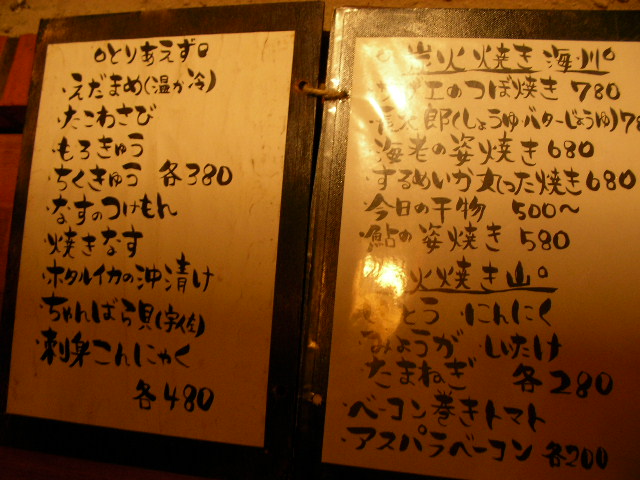 。とりあえず。
・えだまめ(温か冷)
・たこわさび
・もろきゅう
・ちくきゅう 各380
・なすのつけもん
・焼きなす
・ホタルイカの沖漬け
・ちゃんばら貝(宇佐)
・刺身こんにゃく
各480
。炭火焼き海川。
サザエのつぼ焼き 780
太郎(しょうゆバターじょうゆ)78
海老の姿焼き 680
するめいか丸った焼き 680
・今日の干物 500〜
・鮎の姿焼き 580
火焼き山。
とう にんにく
みょうが しいたけ
たまねぎ 各280
・ベーコン巻きトマト
・アスパラベーコン 各200